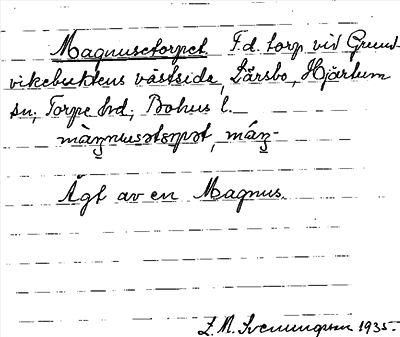 Magnusetorpet F.d. torp vid Grund-
viksbuktens västsida, Lärsbo, Hjärtum
sn, Torpe hd, Bohus l.
màŋnusətɔrpət, máŋ-
Ägt av en Magnus.
L. M. Svenungsson 1935.